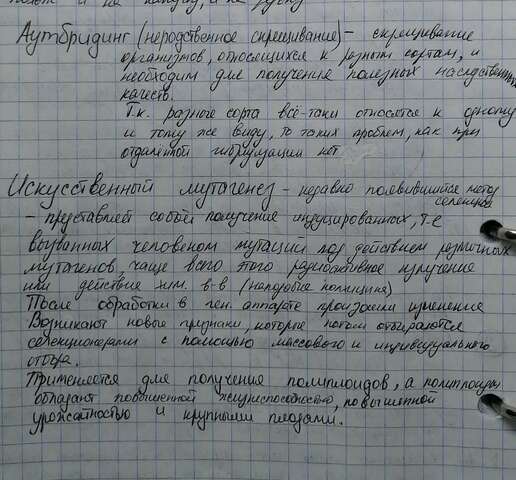 Аутбридинг (неродственное скрещивание) – скрещивание
организмов, относящихся к разным сортам, и
необходим для получения полезных наследственных
качеств.
Т.к. разные сорта всё-таки относятся к одному
и тому же виду, то таких проблем, как при
отдаленной гибридизации нет
Искусственный мутагенез – недавно появившийся метод
селекции
– представляет собой получение индуцированных, т-е
вызванных человеком мутаций под действием различных
мутагенов, чаще всего этого радиоактивное излучение
или действие хим. в-в (наподобие колхицина)
После обработки в ген. аппарате произошли изменения
Возникают новые признаки, которые потом отбираются
селекционерами с помощью массового и индивидуального
отбора.
Применяется для получения полиплоидов, а полиплоиды
обладают повышенной жизнеспособностью, повышенной
урожайностью и крупными плодами.